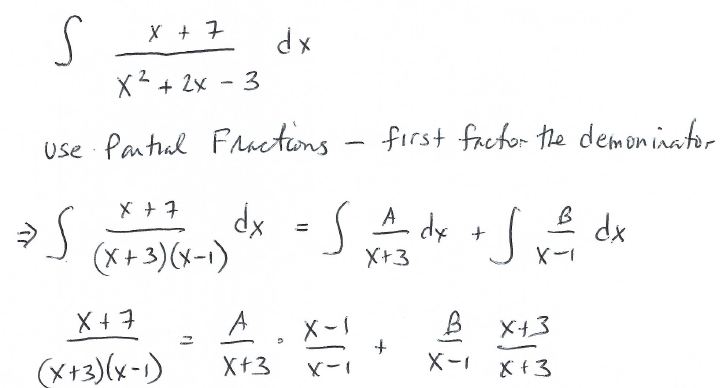 ∫ (x + 7)/(x² + 2x - 3) dx
use Partial Fractions - first factor the demoninator
⇒ ∫ (x + 7)/((x+3)(x-1)) dx = ∫ A/(x+3) dx + ∫ B/(x-1) dx
(x + 7)/((x+3)(x-1)) = A/(x+3) · (x-1)/(x-1) + B/(x-1) (x+3)/(x+3)